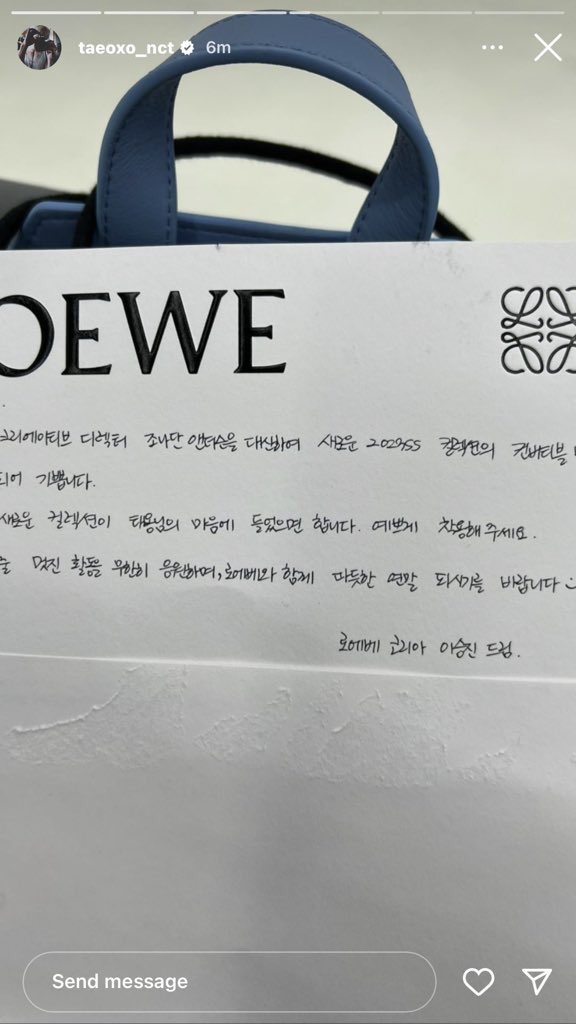 taeoxo_nct 6m
OEWE
크리에이티브 디렉터 조나단 앤더슨을 대신하여 새로운 2023SS 컬렉션의 컨버티블
되어 기쁩니다.
새로운 컬렉션이 태용님의 마음에 들었으면 합니다. 예쁘게 착용해주세요.
멋진 활동을 무한히 응원하며, 로에베와 함께 따듯한 연말 되시기를 바랍니다 :)
로에베 코리아 이승진 드림.
Send message